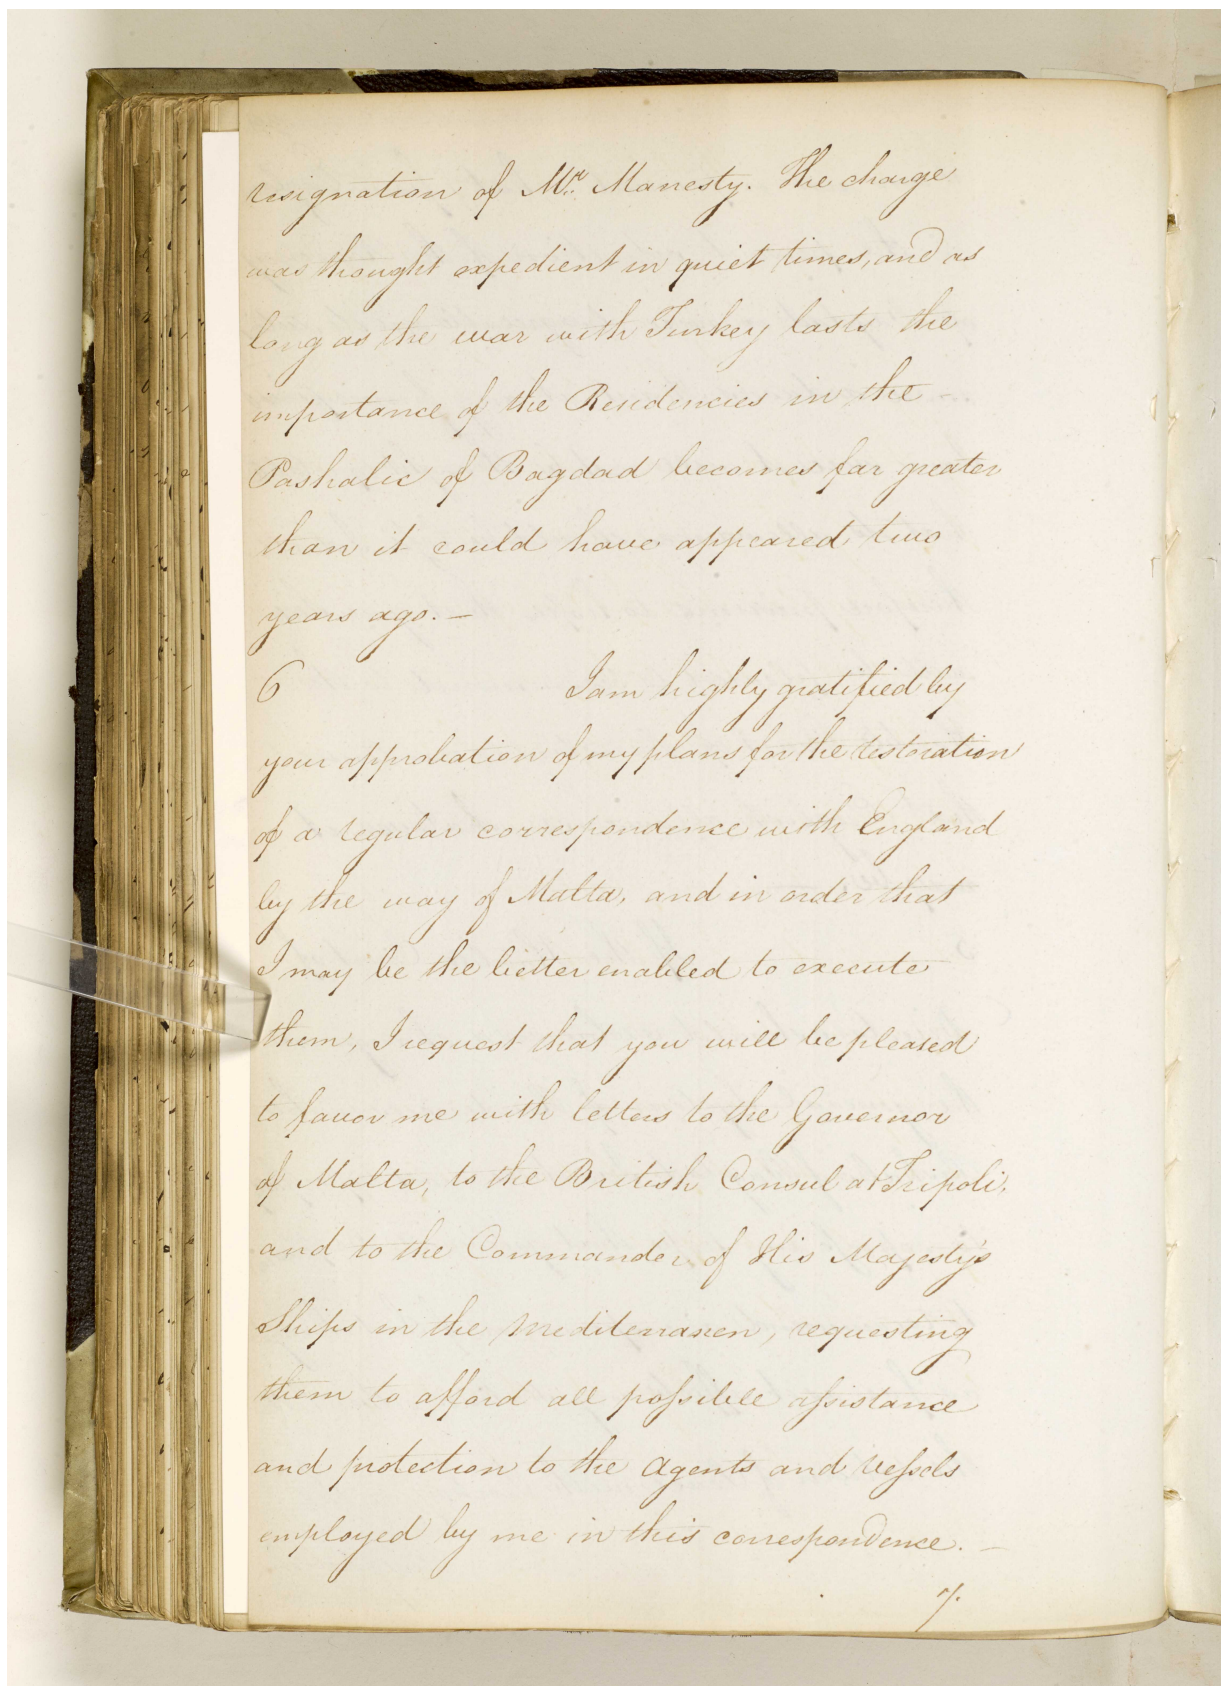 resignation of Mr. Manesty. The charge
was thought expedient in quiet times, and as
long as the war with Turkey lasts the
importance of the Residencies in the
Pashalic of Bagdad becomes far greater
than it could have appeared two
years ago. —
6 I am highly gratified by
your approbation of my plans for the restoration
of a regular correspondence with England
by the way of Malta, and in order that
I may be the better enabled to execute
them, I request that you will be pleased
to favor me with letters to the Governor
of Malta, to the British Consul at Tripoli,
and to the Commander of His Majesty's
Ships in the Mediterranen, requesting
them to afford all possible assistance
and protection to the Agents and Vessels
employed by me in this correspondence. —
7.